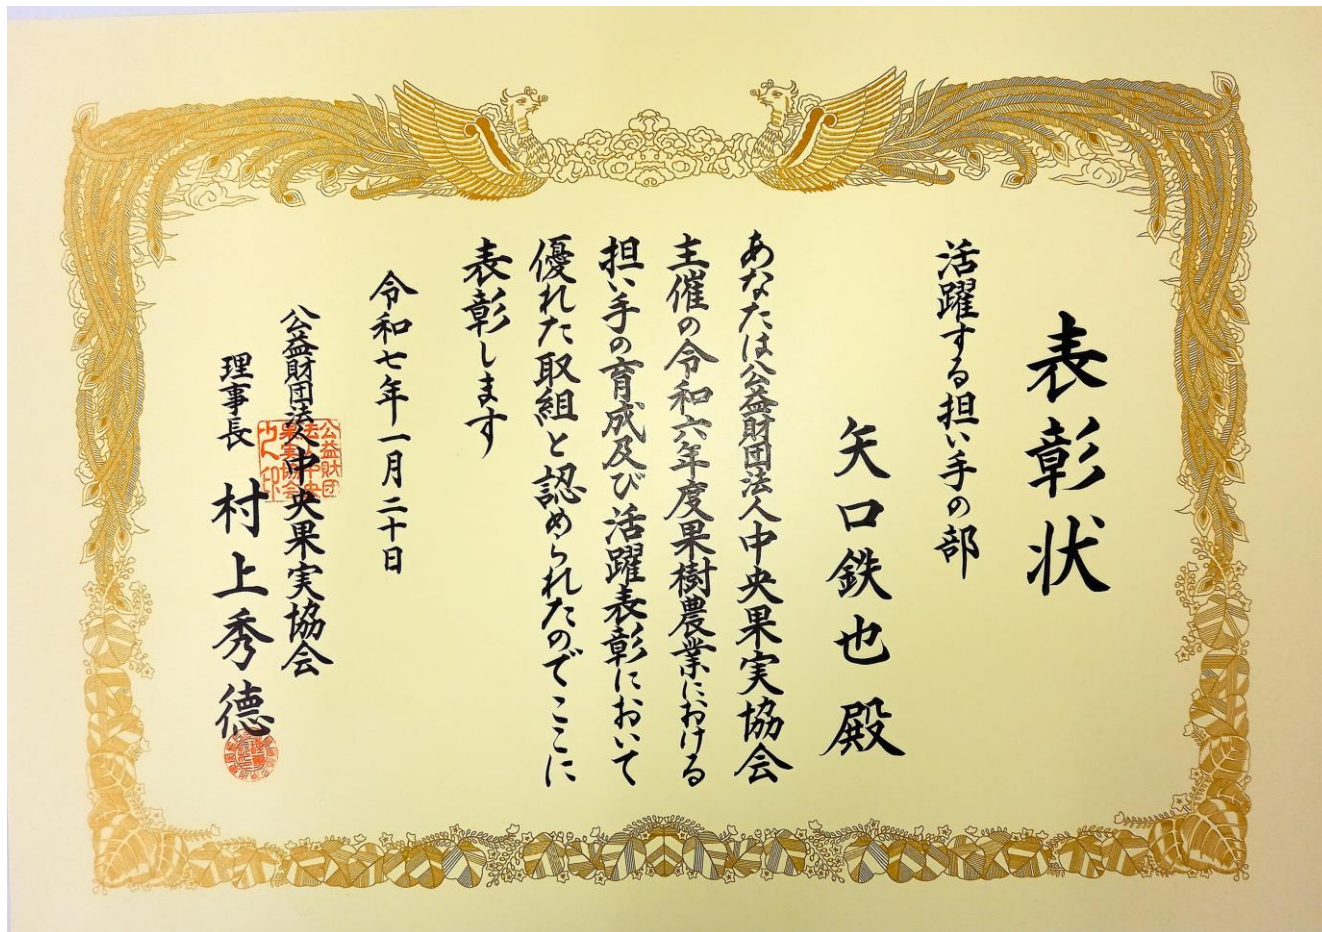 表彰状
活躍する担い手の部
矢口鉄也殿
あなたは公益財団法人中央果実協会
主催の令和六年度果樹農業における
担い手の育成及び活躍表彰において
優れた取組と認められたのでここに
表彰します
令和七年一月二十日
公益財団法人中央果実協会
理事長 村上秀德